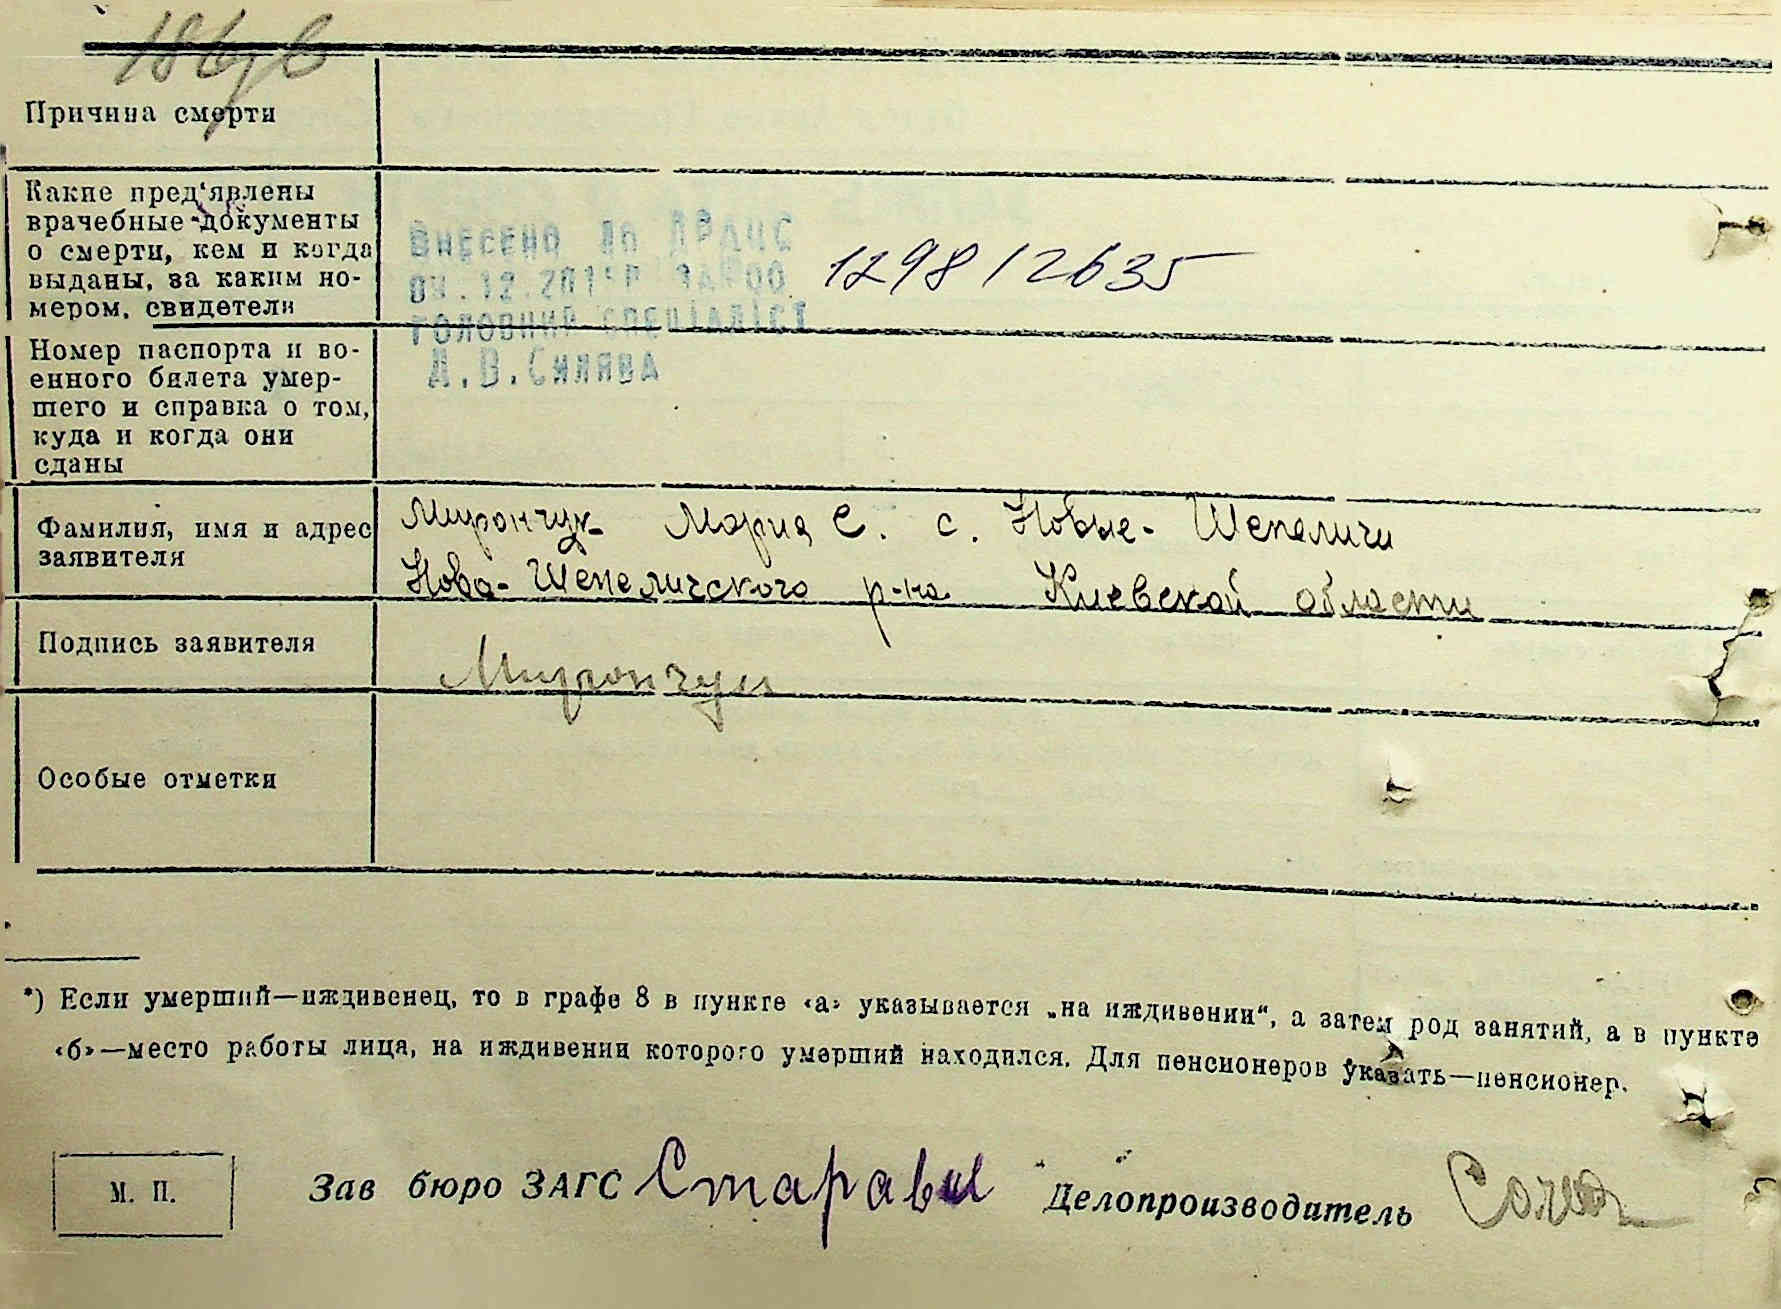 Причина смерти
Какие пред‘явлены
врачебные документы
о смерти, кем и когда
выданы, за каким но-
мером, свидетели
Внесено до ДРАЦС
12.201 00
головний спеціаліст
1298 / 2635
Номер паспорта и во-
енного билета умер-
шего и справка о том,
куда и когда они
сданы
А.В.
Фамилия, имя и адрес
заявителя
Мирончук Мария С. с. Новые-Шепеличи
Ново-Шепеличского р-на Киевской области
Подпись заявителя
Мирончук
Особые отметки
*) Если умерший—иждивенец, то в графе 8 в пункте «а» указывается „на иждивении“, а затем род занятий, а в пункте
«б»—место работы лица, на иждивении которого умерший находился. Для пенсионеров указать—пенсионер.
М. П.
Зав бюро ЗАГС
Делопроизводитель